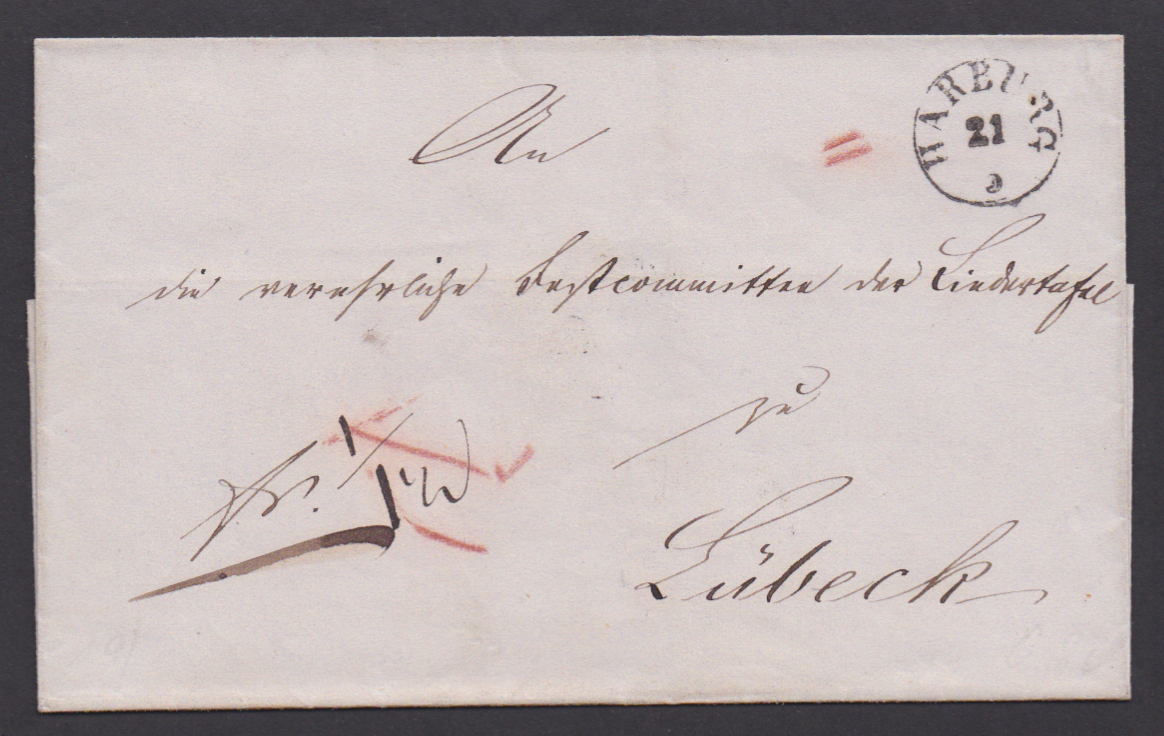 HARBURG
21
An
die verehrliche Festcommittee der Liedertafel
zu
Lübeck
fr.